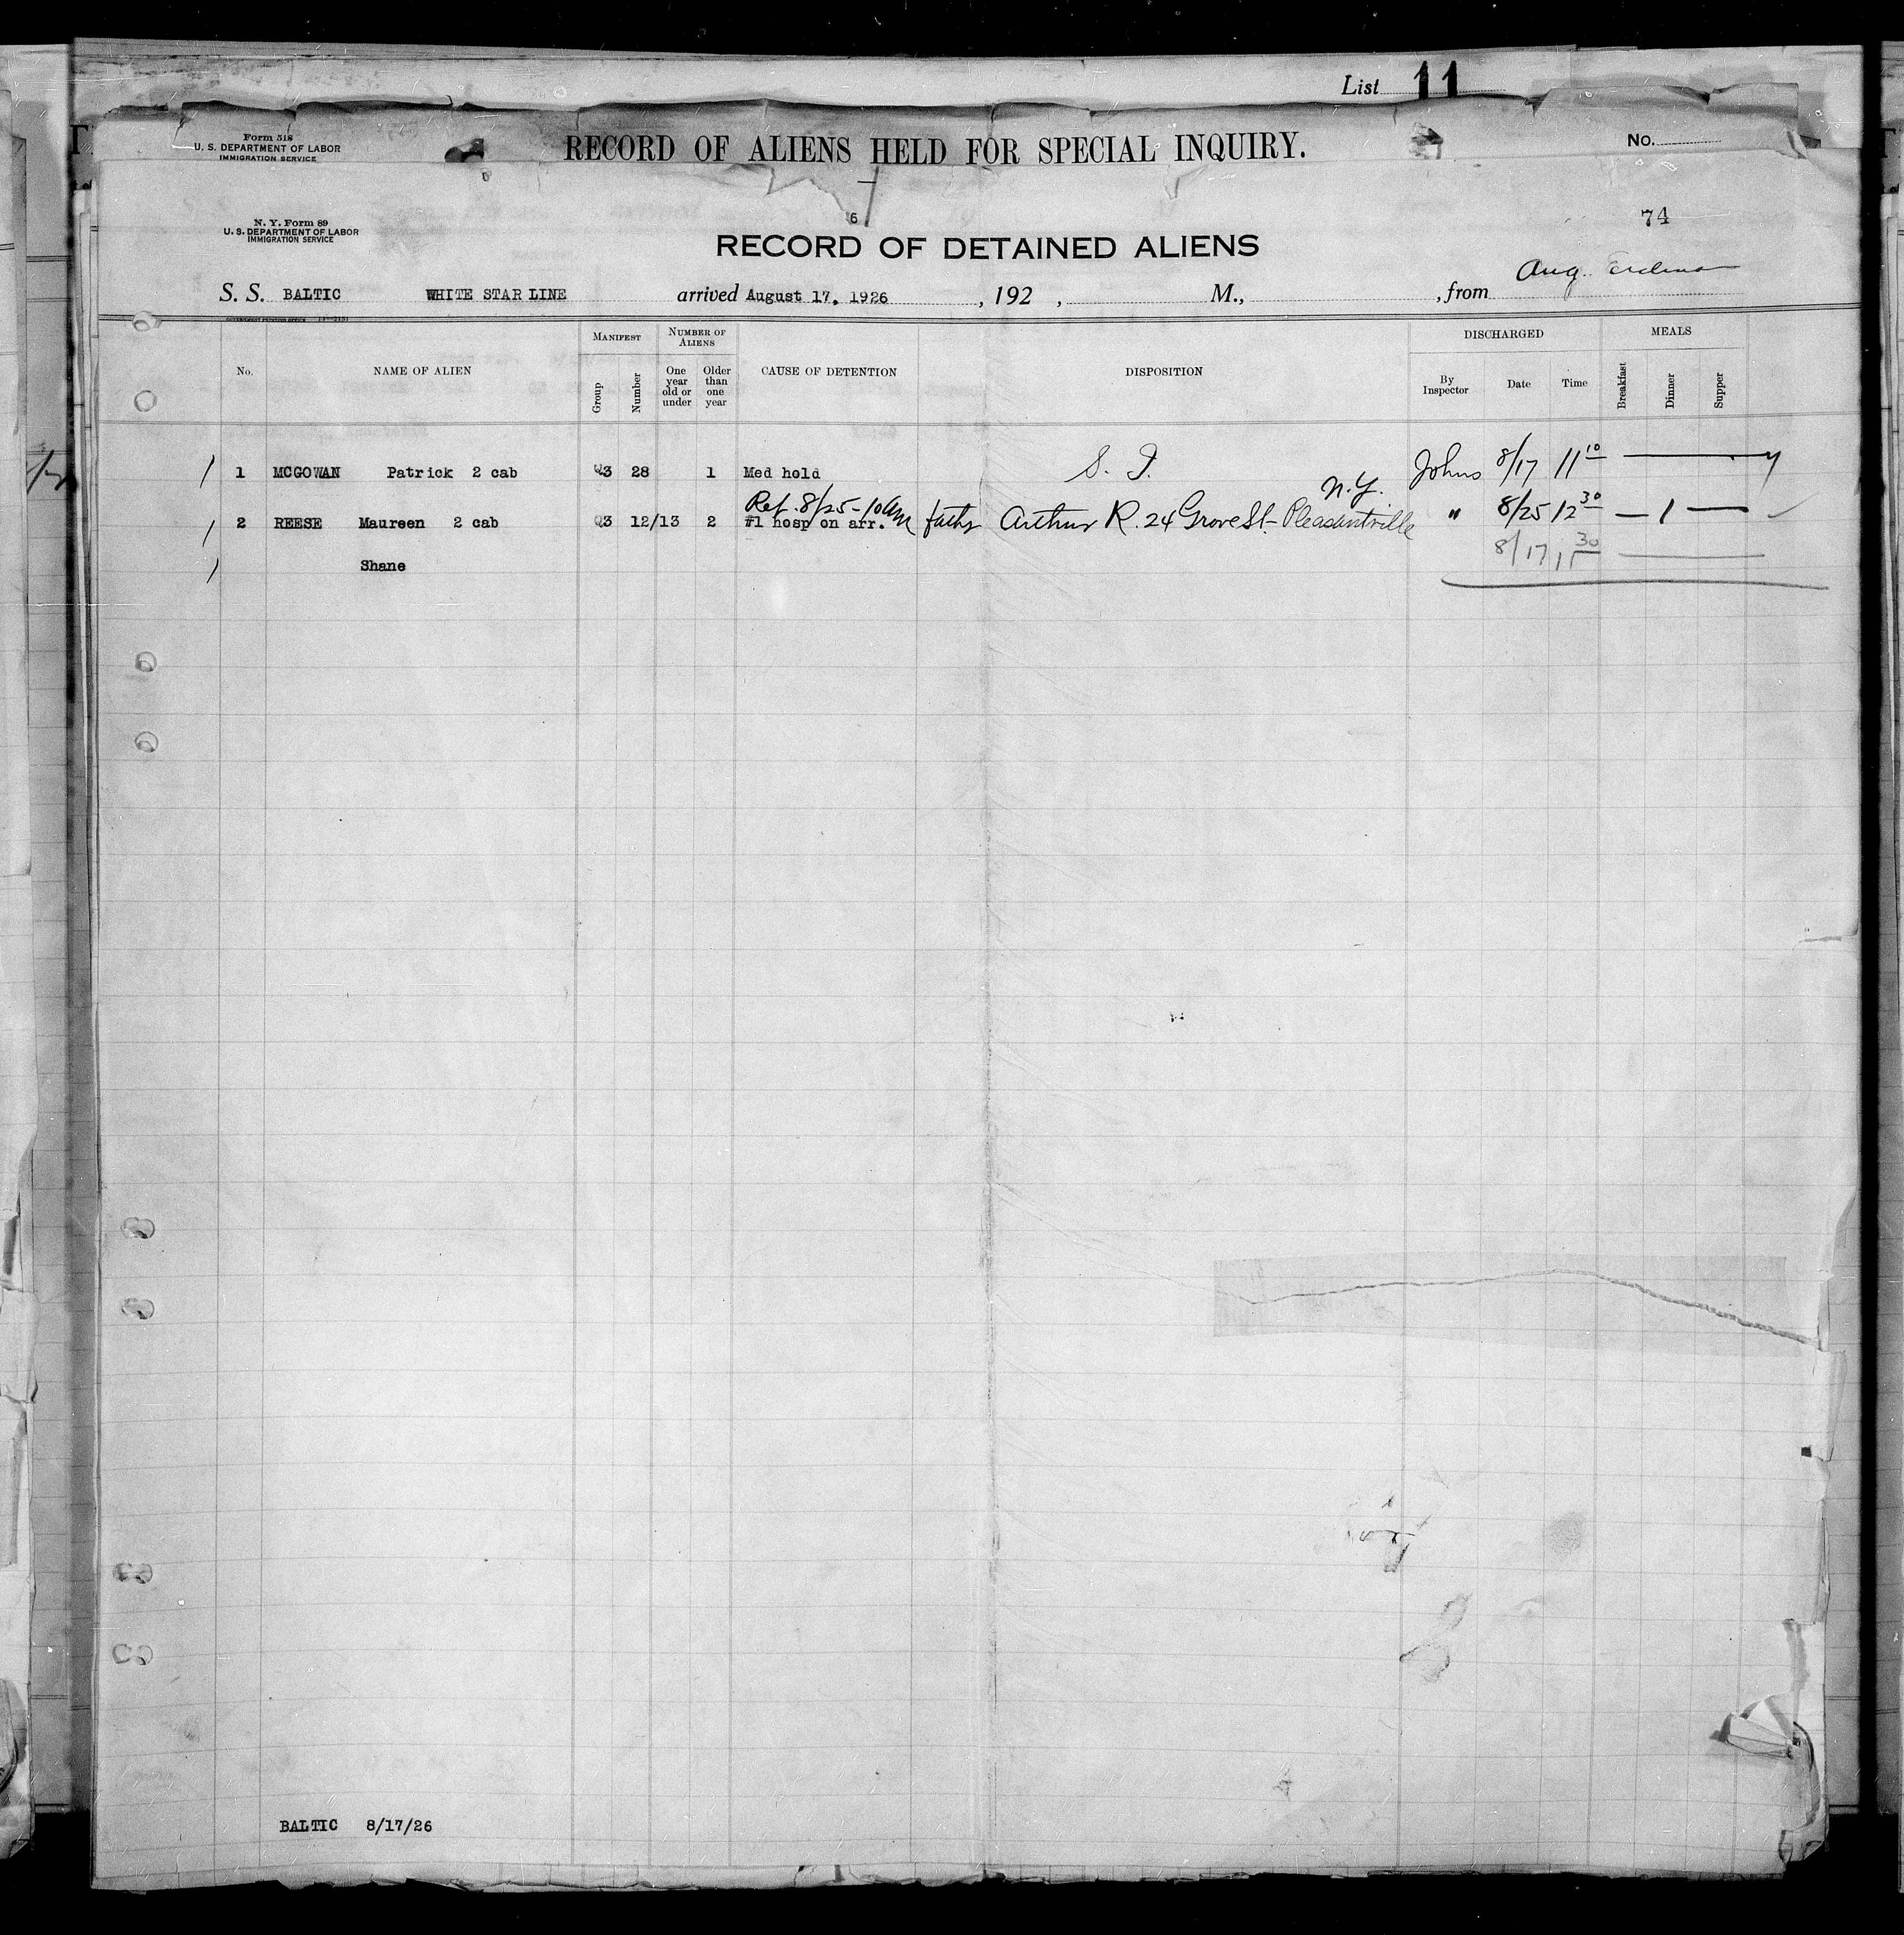 List 11
Form 518
U. S. DEPARTMENT OF LABOR
IMMIGRATION SERVICE
RECORD OF ALIENS HELD FOR SPECIAL INQUIRY.
No.
6
74
N. Y. Form 89
U. S. DEPARTMENT OF LABOR
IMMIGRATION SERVICE
RECORD OF DETAINED ALIENS
Aug.
S. S. BALTIC WHITE STAR LINE arrived August 17, 1926, 192 , M., , from
GOVERNMENT PRINTING OFFICE
MANIFEST NUMBER OF ALIENS DISCHARGED MEALS
No. NAME OF ALIEN Group Number One year old or under Older than one year CAUSE OF DETENTION DISPOSITION By Inspector Date Time Breakfast Dinner Supper
1 MCGOWAN Patrick 2 cab Q3 28 1 Med hold S. I. Johns 8/17 11 10
Ref. 8/25-10AM N.Y.
2 REESE Maureen 2 cab Q3 12/13 2 #1 hosp on arr. fath Arthur R. 24 Grove St- Pleasantville " 8/25 12 30 — 1 —
Shane 8/17 11 30
BALTIC 8/17/26